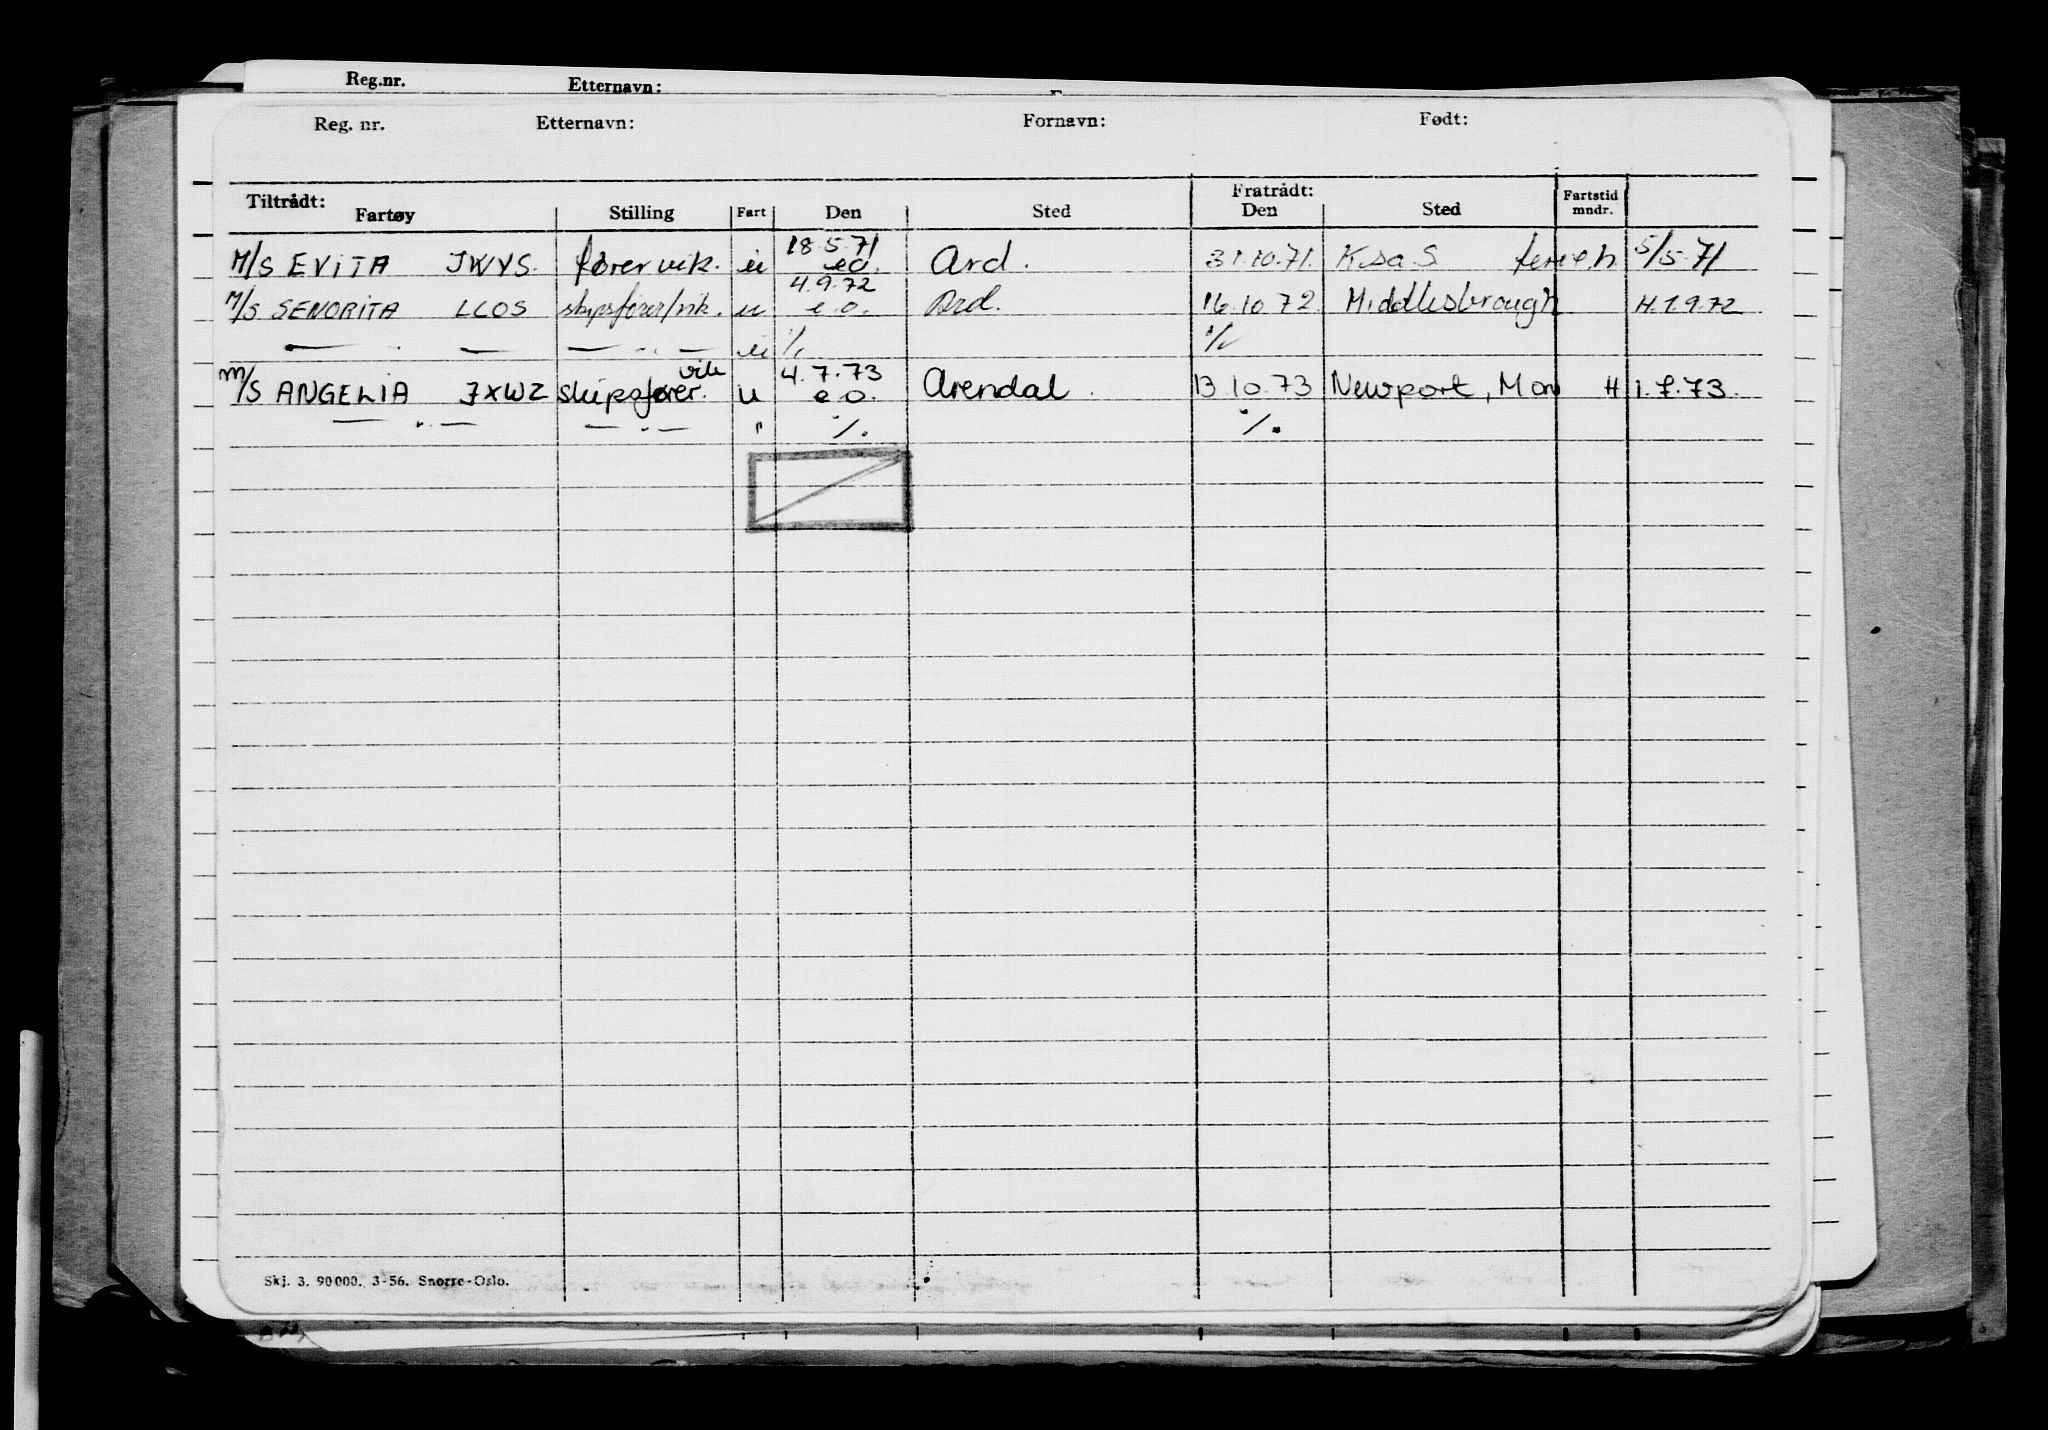 Reg.nr. Etternavn:
Reg. nr. Etternavn: Fornavn: Født:
Tiltrådt: Fratrådt: Fartstid mndr.
Fartøy Stilling Fart Den Sted Den Sted
M/S EVITA JWVS. fører vik. u 18.5.71 e.o. Ard. 31.10.71. K.sa.S 5/5-71
M/S SENORITA LLOS skipsfører/vik. u 4.9.72 e.o. Ard. 16.10.72 Middlesbrough H.1.9.72
— " — — " — — u % %
M/S ANGELIA JXWZ skipsfører vik u 4.7.73 e.o. Arendal. 13.10.73 Newport, Mon H 1.7.73.
— " — — " — " %. %.
Skj. 3. 90000. 3-56. Snorre-Oslo.